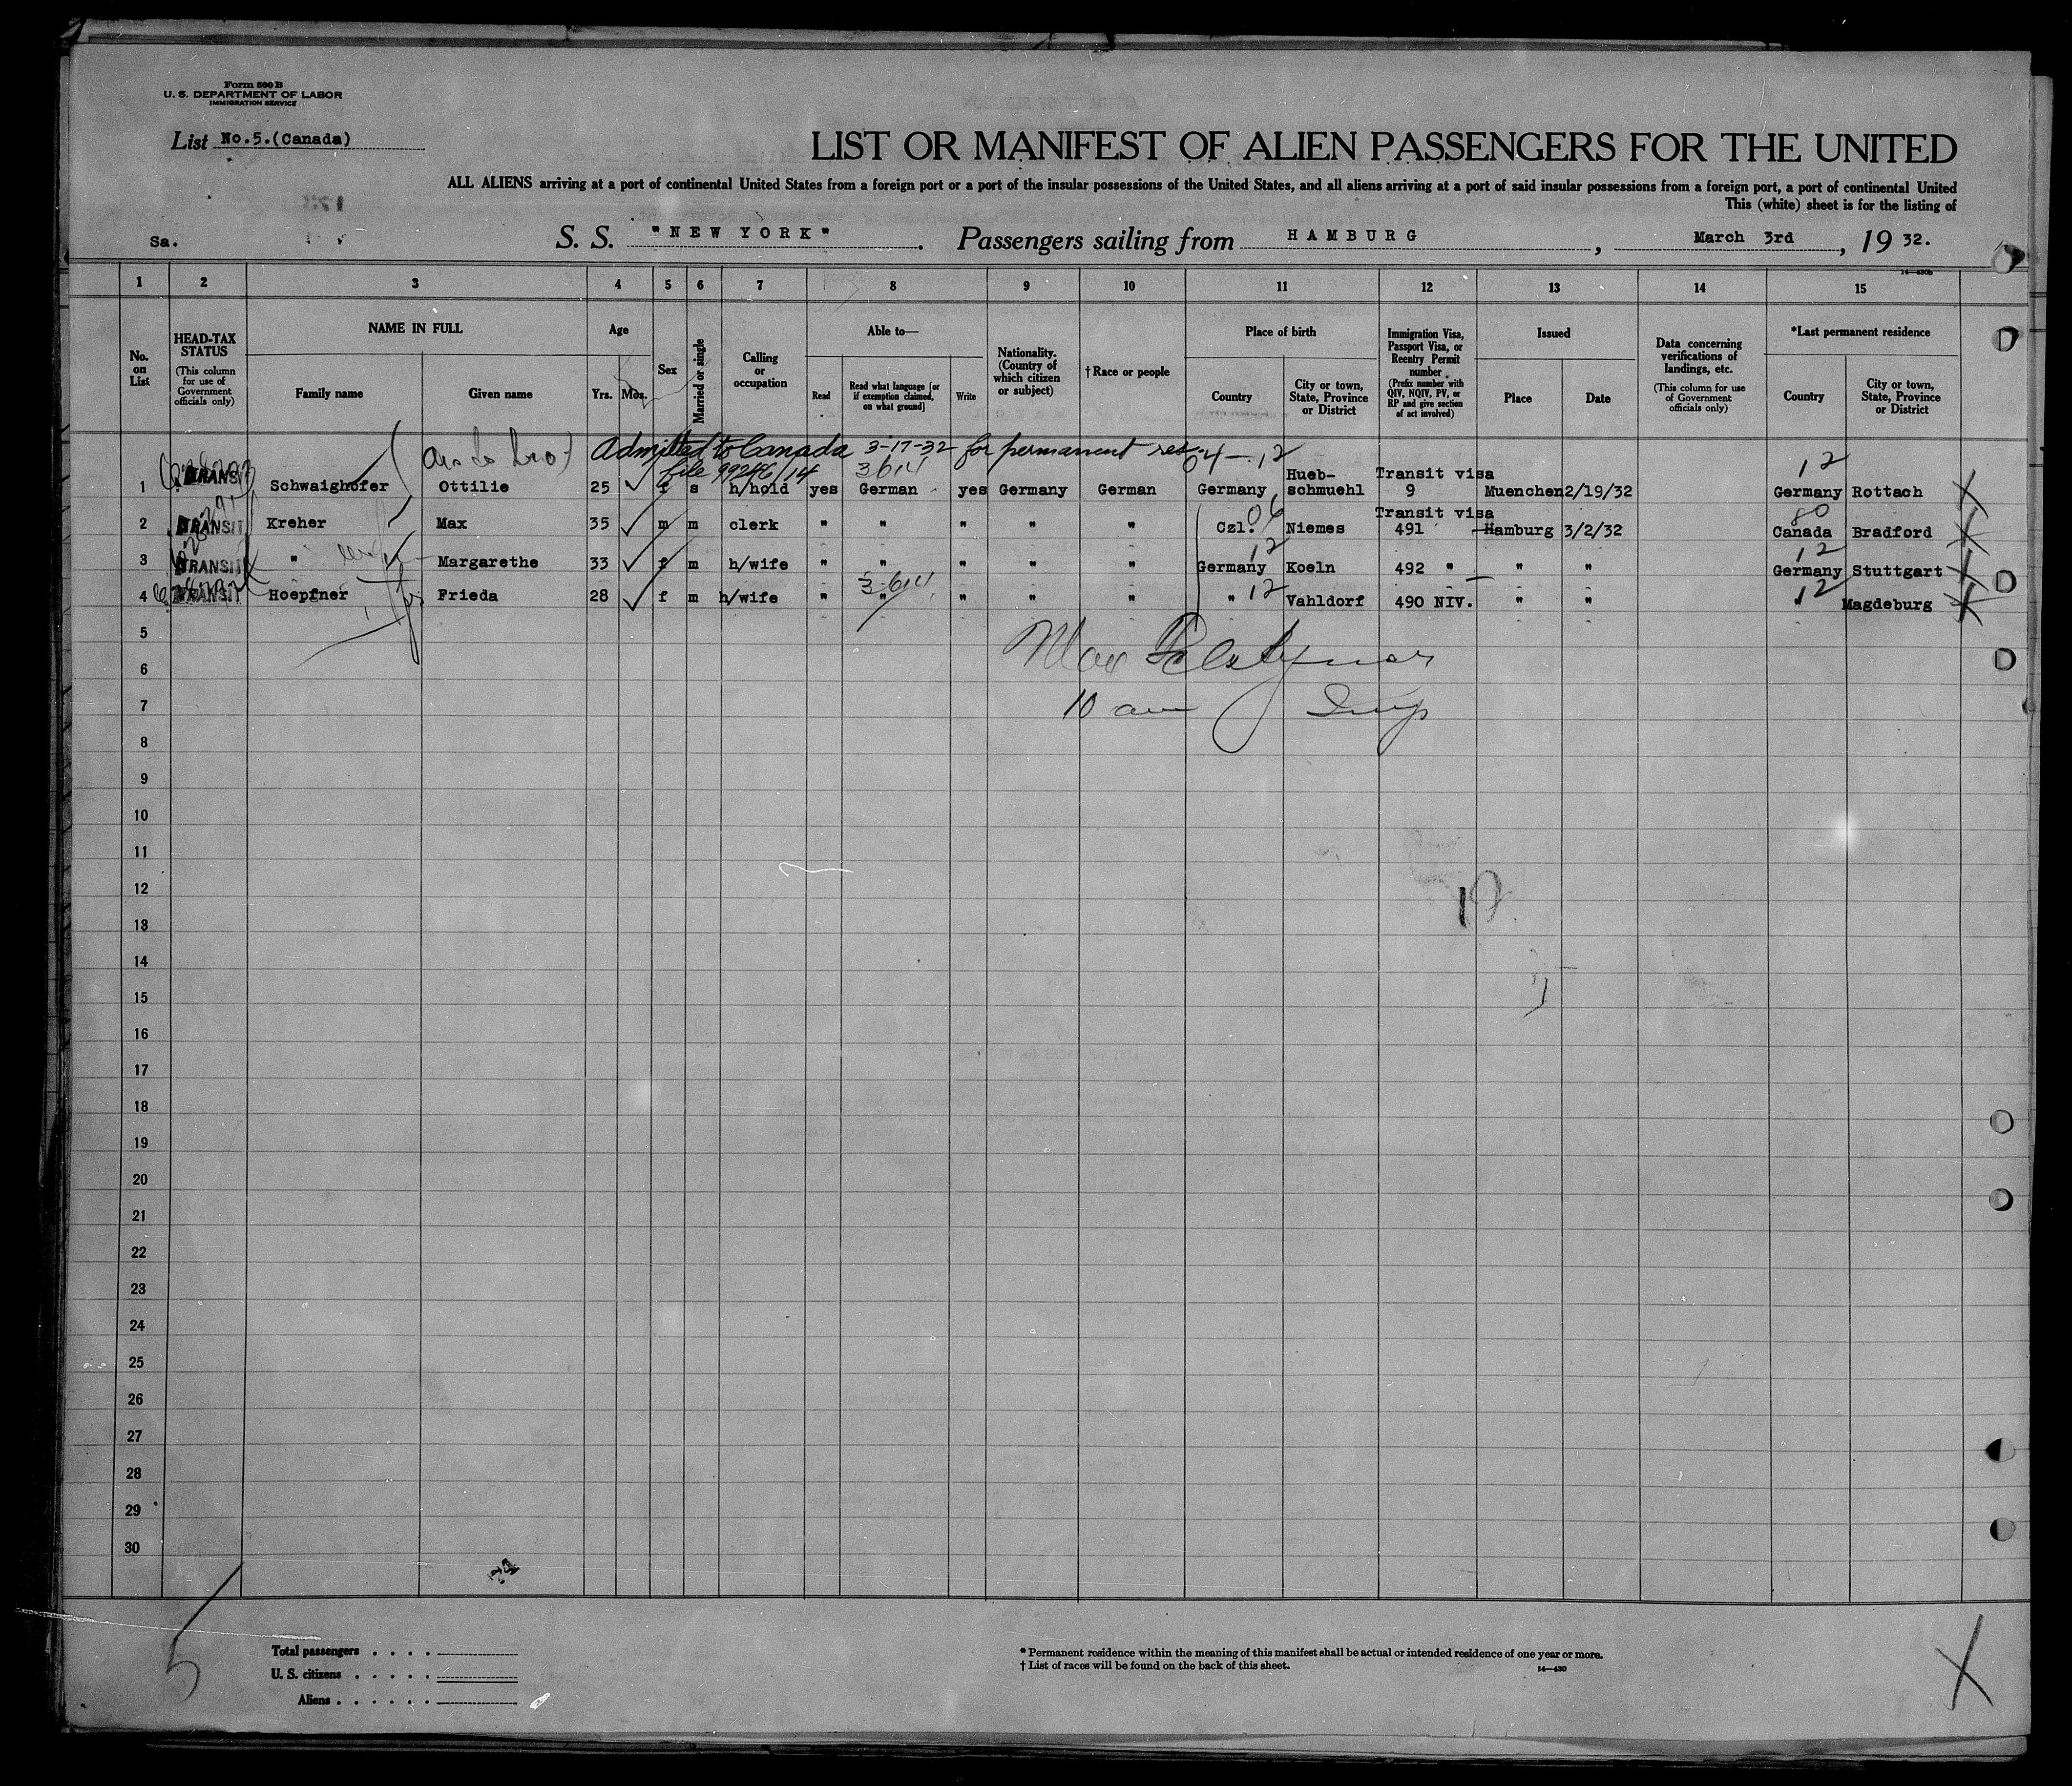 Form 500 B
U. S. DEPARTMENT OF LABOR
IMMIGRATION SERVICE
List No.5.(Canada)
LIST OR MANIFEST OF ALIEN PASSENGERS FOR THE UNITED
ALL ALIENS arriving at a port of continental United States from a foreign port or a port of the insular possessions of the United States, and all aliens arriving at a port of said insular possessions from a foreign port, a port of continental United
This (white) sheet is for the listing of
Sa. S. S. "NEW YORK". Passengers sailing from HAMBURG, March 3rd, 19 32.
14—430b
1 2 3 4 5 6 7 8 9 10 11 12 13 14 15
No. on List
HEAD-TAX STATUS (This column for use of Government officials only)
NAME IN FULL Family name Given name
Age Yrs. Mos.
Sex
Married or single
Calling or occupation
Able to— Read Read what language [or if exemption claimed, on what ground] Write
Nationality. (Country of which citizen or subject)
†Race or people
Place of birth Country City or town, State, Province or District
Immigration Visa, Passport Visa, or Reentry Permit number (Prefix number with QIV, NQIV, PV, or RP and give section of act involved)
Issued Place Date
Data concerning verifications of landings, etc. (This column for use of Government officials only)
*Last permanent residence Country City or town, State, Province or District
Admitted to Canada 3-17-32 for permanent res. 04-12
file 99246/14 3614 12
1 TRANSIT Schwaighofer Ottilie 25 f s h/hold yes German yes Germany German Germany Hueb-schmuehl Transit visa 9 Muenchen 2/19/32 Germany Rottach
06 80
2 TRANSIT Kreher Max 35 m m clerk " " " " " Czl. Niemes Transit visa 491 Hamburg 3/2/32 Canada Bradford
12 12
3 TRANSIT " Margarethe 33 f m h/wife " " " " " Germany Koeln 492 " " " Germany Stuttgart
3-614 12 12
4 TRANSIT Hoepfner Frieda 28 f m h/wife " " " " " " Vahldorf 490 NIV. " " " Magdeburg
5
6 Max
7 10 am Insp
8
9
10
11
12
13
14
15
16
17
18
19
20
21
22
23
24
25
26
27
28
29
30
5
Total passengers
U. S. citizens
Aliens
* Permanent residence within the meaning of this manifest shall be actual or intended residence of one year or more.
† List of races will be found on the back of this sheet.
14—430
X